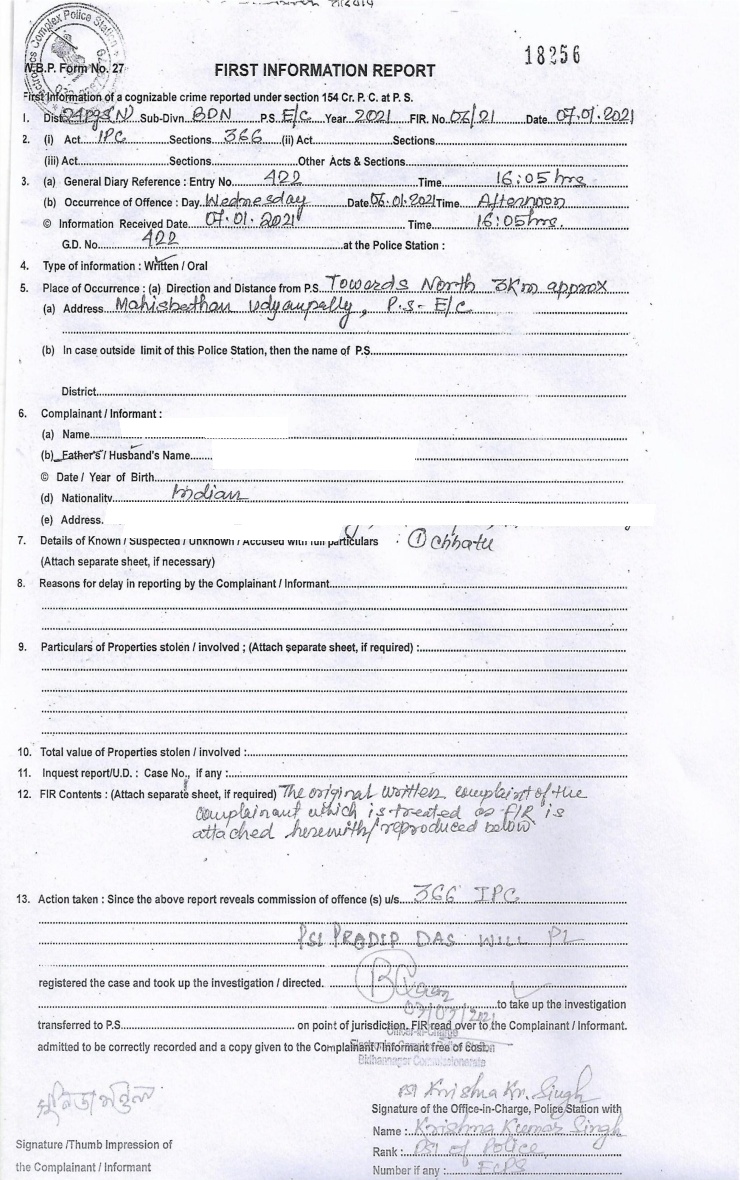 Electronics Complex Police Station
18256
W.B.P. Form No. 27
FIRST INFORMATION REPORT
First Information of a cognizable crime reported under section 154 Cr. P. C. at P. S.
1. Dist 24 Pgs (N) Sub-Divn. BDN P.S. E/C Year 2021 FIR. No. 06/21 Date 07.01.2021
2. (i) Act IPC Sections 366 (ii) Act Sections
(iii) Act Sections Other Acts & Sections
3. (a) General Diary Reference : Entry No. 422 Time 16:05 hrs
(b) Occurrence of Offence : Day Wednesday Date 06.01.2021 Time Afternoon
© Information Received Date 07.01.2021 Time 16:05 hrs.
G.D. No. 422 at the Police Station :
4. Type of information : Written / Oral
5. Place of Occurrence : (a) Direction and Distance from P.S. Towards North 3Km approx
(a) Address Mahisbathan Udyanpally, P.S- E/C
(b) In case outside limit of this Police Station, then the name of P.S.
District
6. Complainant / Informant :
(a) Name
(b) Father's / Husband's Name
© Date / Year of Birth
(d) Nationality Indian
(e) Address.
7. Details of Known / Suspected / Unknown / Accused with full particulars : ① Chhatu
(Attach separate sheet, if necessary)
8. Reasons for delay in reporting by the Complainant / Informant
9. Particulars of Properties stolen / involved ; (Attach separate sheet, if required) :
10. Total value of Properties stolen / involved :
11. Inquest report/U.D. : Case No., if any :
12. FIR Contents : (Attach separate sheet, if required) The original written complaint of the
complainant which is treated as FIR is
attached herewith/reproduced below
13. Action taken : Since the above report reveals commission of offence (s) u/s 366 IPC
PSI PRADIP DAS WILL PL
registered the case and took up the investigation / directed.
to take up the investigation
07/01/2021
transferred to P.S. on point of jurisdiction. FIR read over to the Complainant / Informant.
Officer-in-Charge
admitted to be correctly recorded and a copy given to the Complainant / Informant free of cost.
Bidhannagar Commissionerate
PSI Krishna Kr. Singh
Signature of the Office-in-Charge, Police Station with
Name : Krishna Kumar Singh
Signature /Thumb Impression of
Rank : PSI of Police
the Complainant / Informant
Number if any : ECPS